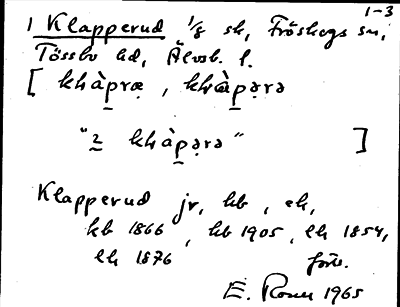 1-3
1 Klapperud 1/8 sk, Fröskogs sn,
Tössbo hd, Älvsb. l.
[ khàpræ, khàpərə
"2 khàpərə" ]
Klapperud jr, kb, ek,
kb 1866, kb 1905, ek 1854,
ek 1876 förr.
E. 1965